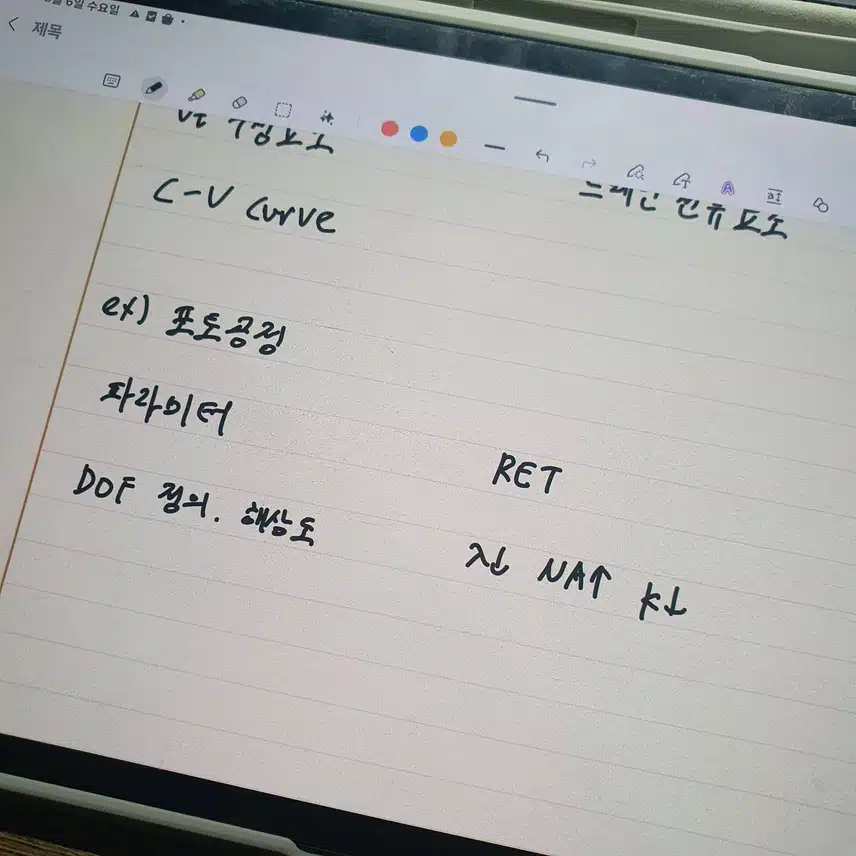 6일 수요일
제목
C-V Curve
드레인 전류 요소
ex) 포토공정
파라미터
RET
DOF 정의. 해상도
λ↓ NA↑ k↓